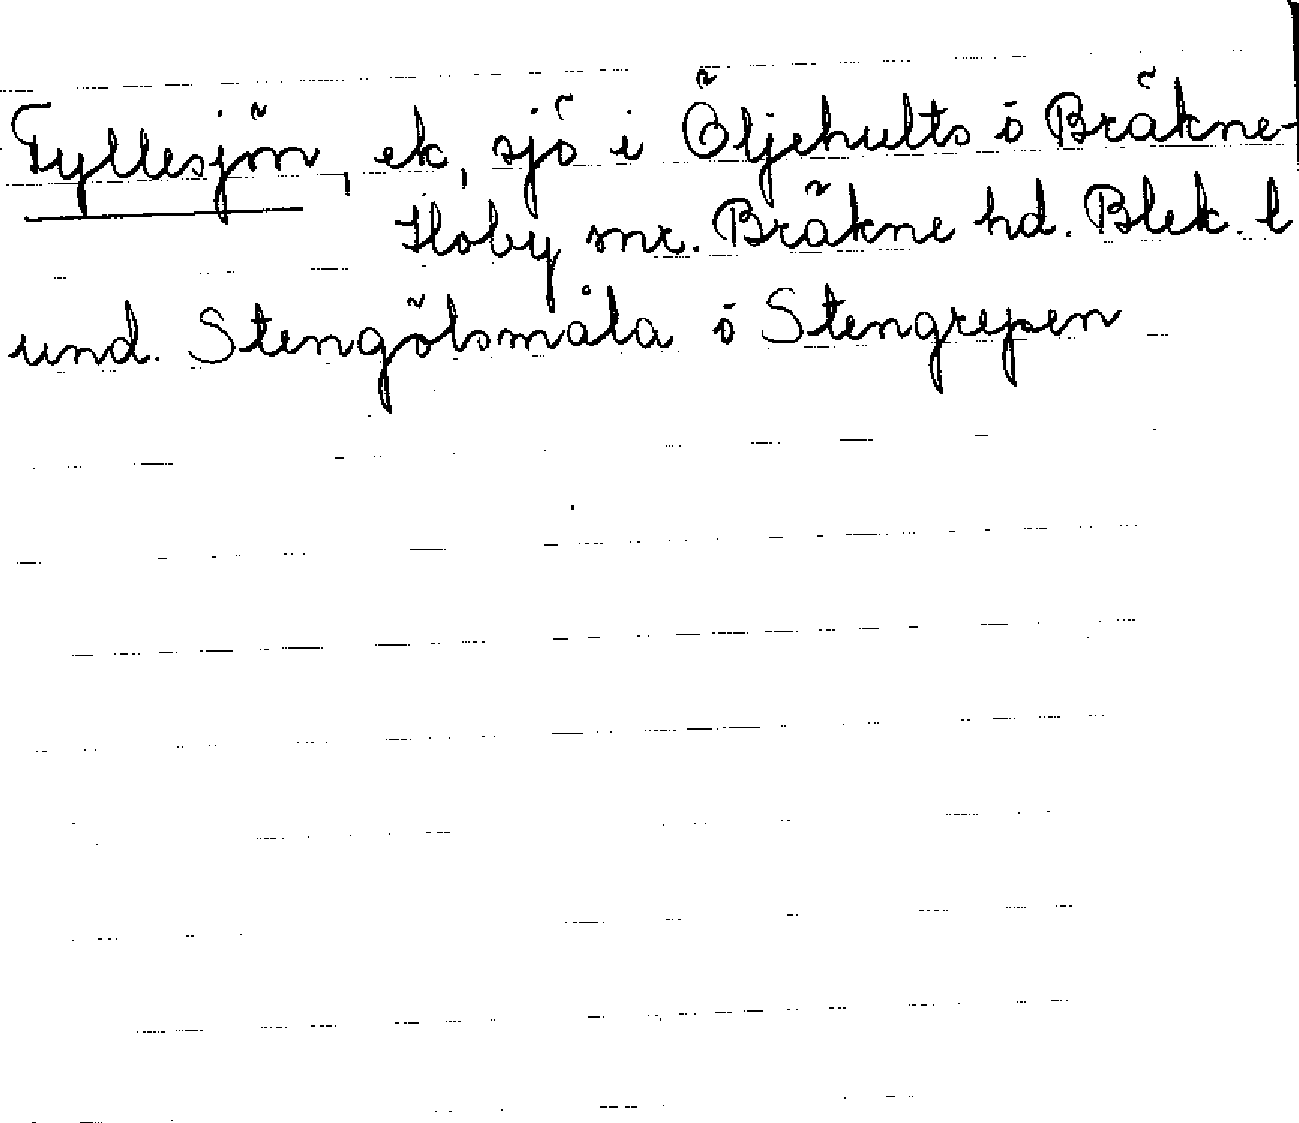 Tyllesjön, ek, sjö i Öljehults o Bräkne-
Hoby snr. Bräkne hd. Blek. l
und. Stengölsmåla o Stengrepen